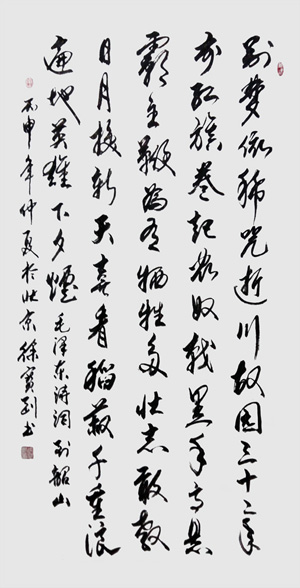 别夢依稀咒逝川故園三十二年
前紅旗卷起農奴戟黑手高悬
霸主鞭為有牺牲多壮志敢教
日月换新天喜看稻菽千重浪
遍地英雄下夕煙毛澤东詩词到韶山
丙申年仲夏於北京徐寶书